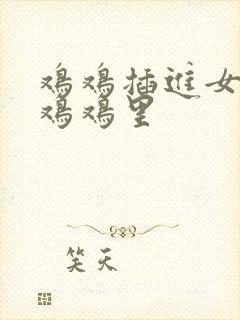 鸡鸡插进女
鸡鸡里
笑天